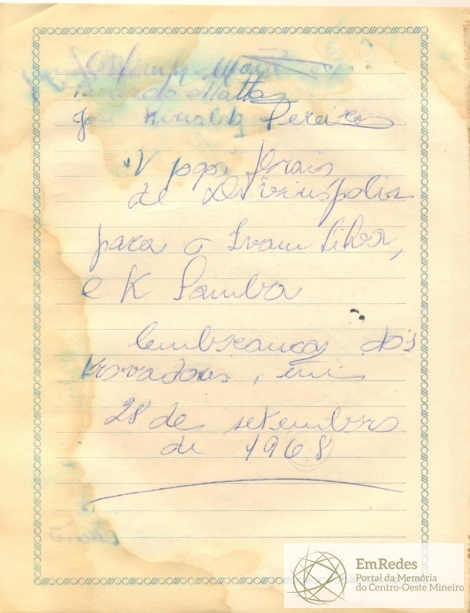 de Mattos
José Pereira
V jogos florais
de Divinópolis
para o Ivan Silva,
e K Samba
lembranças dos
trovadores, em
28 de setembro
de 1968
EmRedes
Portal da Memória
do Centro-Oeste Mineiro